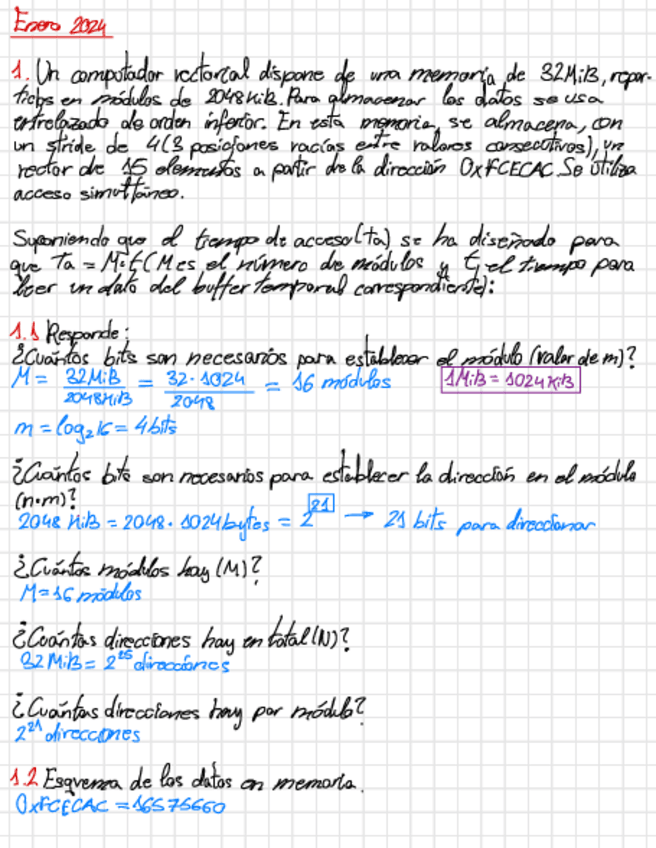 Enero 2024
1. Un computador vectorial dispone de una memoria de 32MiB, repar-
tidos en módulos de 2048KiB. Para almacenar los datos se usa
entrelazado de orden inferior. En esta memoria, se almacena, con
un stride de 4(3 posiciones vacías entre valores consecutivos), un
vector de 15 elementos a partir de la dirección 0xFCECAC. Se utiliza
acceso simultáneo.
Suponiendo que el tiempo de acceso(ta) se ha diseñado para
que Ta = M·t (M es el número de módulos y t, el tiempo para
leer un dato del buffer temporal correspondiente):
1.1 Responde:
¿Cuántos bits son necesarios para establecer el módulo (valor de m)?
M = 32MiB / 2048KiB = 32·1024 / 2048 = 16 módulos 1MiB = 1024KiB
m = log₂16 = 4bits
¿Cuántos bits son necesarios para establecer la dirección en el módulo
(n-m)?
2048 KiB = 2048·1024bytes = 2²¹ → 21 bits para direccionar
¿Cuántos módulos hay (M)?
M=16 módulos
¿Cuántas direcciones hay en total(N)?
32MiB = 2²⁵ direcciones
¿Cuántas direcciones hay por módulo?
2²¹ direcciones
1.2 Esquema de los datos en memoria.
0xFCECAC = 16575660